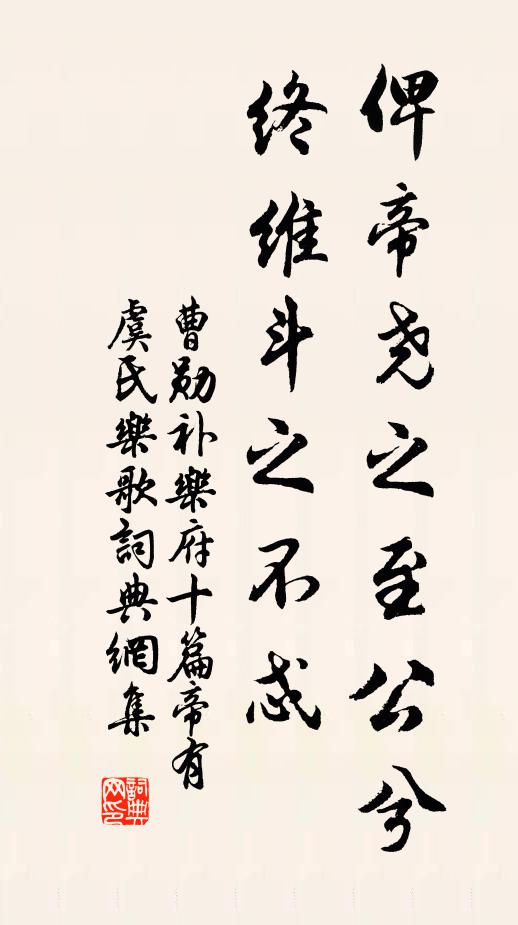 俾帝尧之至公兮
终维斗之不忒
曹勋补樂府十篇帝有
虞氏樂歌詞典網集
詞典网印